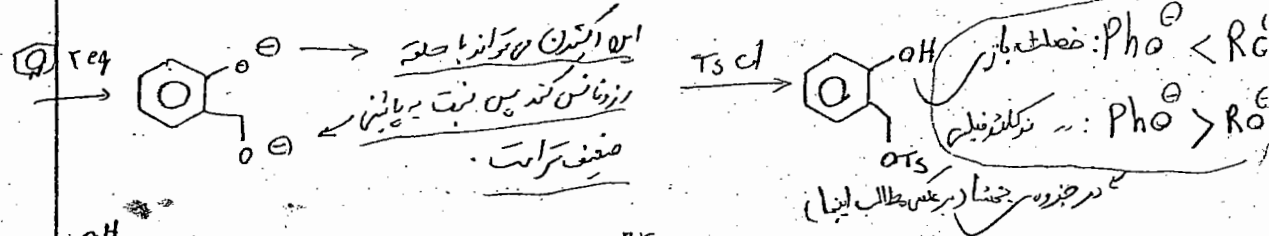 ۲ eq
O⊖
O⊖
این اکسیژن می‌تواند با حلقه
رزونانس کند پس نسبت به پائینی
ضعیف‌تر است.
TsCl
OH
OTs
خصلت بازی: PhO⊖ < RO⊖
〃 نوکلئوفیلی: PhO⊖ > RO⊖
در جزوه‌ی (برعکس مطالب اینجا)
OH